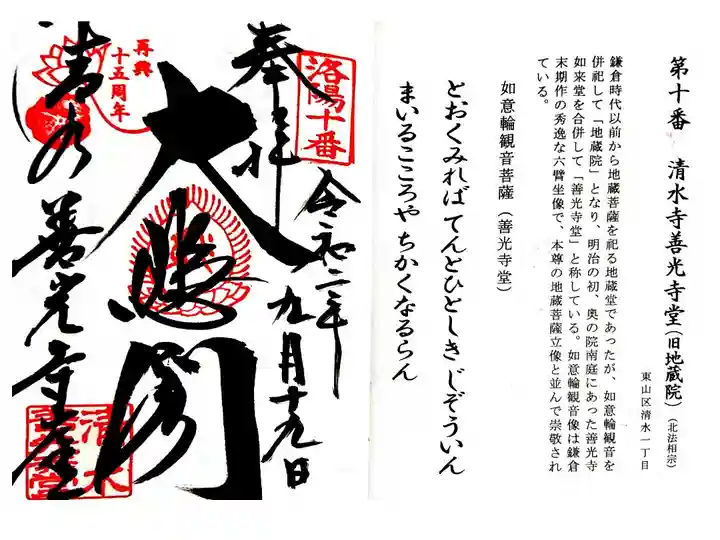 第十番 清水寺善光寺堂(旧地蔵院)(北法相宗)
東山区清水一丁目
鎌倉時代以前から地蔵菩薩を祀る地蔵堂であったが、如意輪観音を
併祀して「地蔵院」となり、明治の初、奥の院南庭にあった善光寺
如来堂を合併して「善光寺堂」と称している。如意輪観音像は鎌倉
末期作の秀逸な六臂坐像で、本尊の地蔵菩薩立像と並んで崇敬され
ている。
如意輪観音菩薩(善光寺堂)
とおくみれば てんとひとしき じぞういん
まいるこころや ちかくなるらん
洛陽十番
奉拝
令和二年九月十九日
大悲閣
再興
十五周年
清水 善光寺堂
清水
善光寺堂